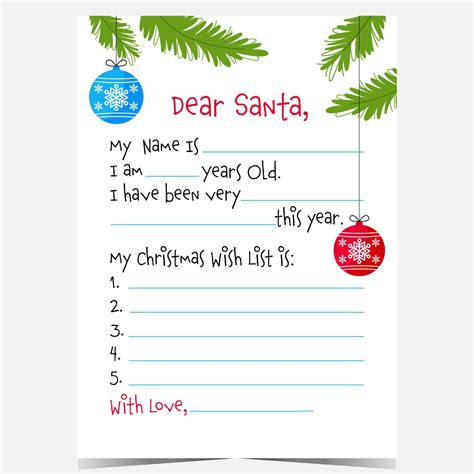 Dear Santa,
My Name Is
I am years Old.
I have been very
this year.
My Christmas Wish List is:
1.
2.
3.
4.
5.
With Love,